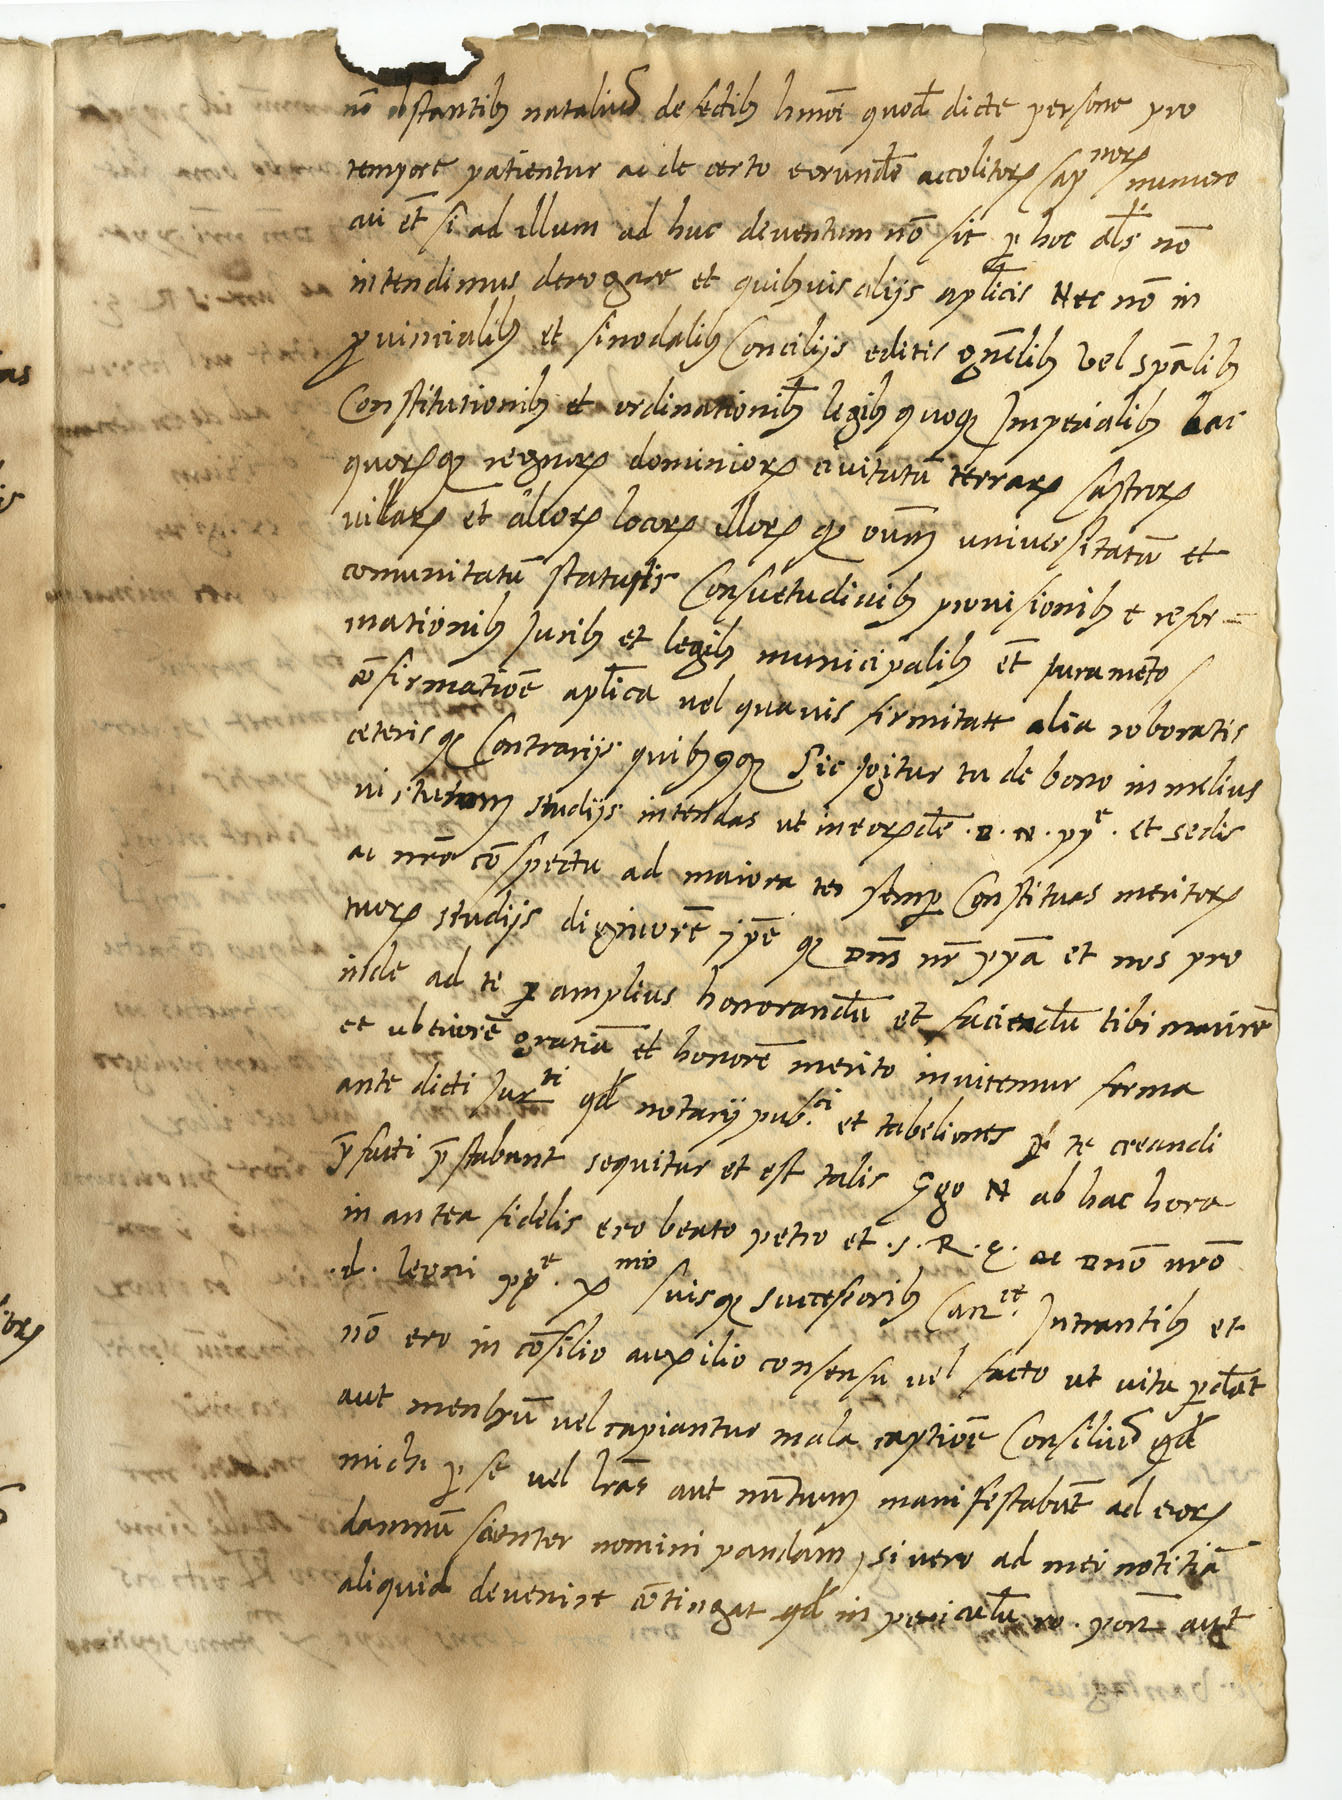 nō obstantibꝫ nataliū defectibꝫ hmōi quod dicte persone pro
tempore patientur ac de certo eorundē accolitoꝝ cap^noꝝ numero
cui et̄ si ad illum ad huc deventum nō sit ꝑ hoc al̄s nō
intendimus derogare et quibusuis alijs apl̄icis Nec nō in
ꝓvincialibꝫ et sinodalibꝫ Concilijs editis gn̄alibꝫ vel spālibꝫ
Constitutionibꝫ et ordinationibꝫ legibꝫ quoqꝫ Imperialibꝫ hac
quoꝝqꝫ regnoꝝ dominioꝝ civitatū terraꝝ Castroꝝ
villaꝝ et alioꝝ locoꝝ illoꝝ qꝫ oīum universitatū et
comunitatū statutis Consuetudinibꝫ provisionibꝫ e refor=
mationibꝫ Iuribꝫ et legibꝫ municipalibꝫ et̄ Iuramēto
cōfirmatiōe apl̄ica vel quavis firmitate alia roboratis
ceteris qꝫ Contrarijs quibꝫcqꝫ Sic Igitur tu de bono in melius
studijs intendas ut in eorꝫdē .D.N.pp^e. et sedis
ac nr̄o cōspectu ad maiora te semꝑ Constituas meritoꝝ
tuoꝝ studijs digniorē ip̄e qꝫ Dn̄s nr̄ ppā et nos pro
inde ad te ꝑ amplius honorandū et faciendū tibi maiorē
et uberiorē gratiā et honorē merito invitemur forma
ante dicti Iur^ti qđ notarij pub^ci. et tabeliones ꝑ te creandi
p̄fati p̄stabunt sequitur et est talis Ego N ab hac hora
in antea fidelis ero beato petro et .S.R.E. ac Dn̄o nr̄o
.d. leoni pp^e. X^mo suisqꝫ successoribꝫ Can^ce. Intrantibꝫ et
nō ero in cōsilio auxilio consensu vel facto ut vita ꝑdāt
aut menbrū vel capiantur mala captiōe Consiliū qđ
michi ꝑ se vel lr̄as aut nūtium manifestabūt ad eoꝝ
damnū scienter nemini pandam, si vero ad mei notitiā
aliquid devenire cōtingat qđ in periculū ro. pon̄t aut